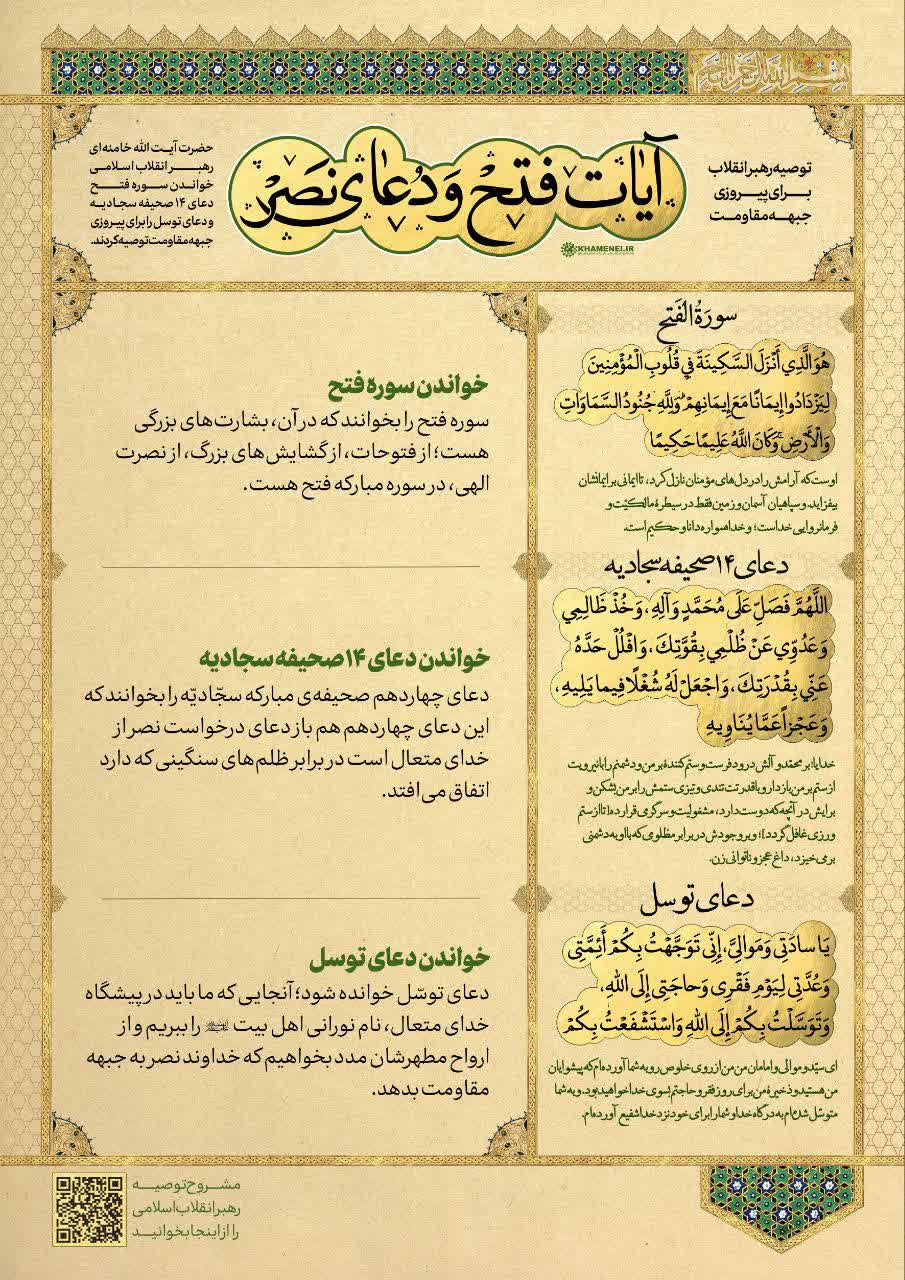 بسم الله الرحمن الرحیم
توصیه رهبر انقلاب
برای پیروزی
جبهه مقاومت
آیات فتح و دعای نصر
KHAMENEI.IR
حضرت آیت الله خامنه‌ای
رهبر انقلاب اسلامی
خواندن سوره فتح
دعای ۱۴ صحیفه سجادیه
و دعای توسل را برای پیروزی
جبهه مقاومت توصیه کردند.
سورة الفتح
هُوَ الَّذِي أَنْزَلَ السَّكِينَةَ فِي قُلُوبِ الْمُؤْمِنِينَ
لِيَزْدَادُوا إِيمَانًا مَعَ إِيمَانِهِمْ ۗ وَلِلَّهِ جُنُودُ السَّمَاوَاتِ
وَالْأَرْضِ ۚ وَكَانَ اللَّهُ عَلِيمًا حَكِيمًا
اوست که آرامش را در دل‌های مؤمنان نازل کرد، تا ایمانی بر ایمانشان
بیفزاید. و سپاهیان آسمان و زمین فقط در سیطرهٔ مالکیّت و
فرمانروایی خداست؛ و خدا همواره دانا و حکیم است.
خواندن سوره فتح
سوره فتح را بخوانند که در آن، بشارت‌های بزرگی
هست؛ از فتوحات، از گشایش‌های بزرگ، از نصرت
الهی، در سوره مبارکه فتح هست.
دعای ۱۴ صحیفه سجادیه
اللَّهُمَّ فَصَلِّ عَلَى مُحَمَّدٍ وَآلِهِ، وَخُذْ ظَالِمِي
وَعَدُوِّي عَنْ ظُلْمِي بِقُوَّتِكَ، وَافْلُلْ حَدَّهُ
عَنِّي بِقُدْرَتِكَ، وَاجْعَلْ لَهُ شُغْلًا فِيما يَلِيهِ،
وَعَجْزاً عَمَّا يُنَاوِيهِ
خدایا! بر محمّد و آلش درود فرست و ستم کنندهٔ بر من و دشمنم را با نیرویت
از ستم بر من باز دار و با قدرتت تندی و تیزی ستمش را بر من بشکن و
برایش در آنچه که دوست دارد، مشغولیت و سرگرمی قرار ده [تا از ستم
ورزی غافل گردد]؛ و بر وجودش در برابر مظلومی که با او به دشمنی
برمی‌خیزد، داغ عجز و ناتوانی زن.
خواندن دعای ۱۴ صحیفه سجادیه
دعای چهاردهم صحیفه‌ی مبارکه سجّادیّه را بخوانند که
این دعای چهاردهم هم باز دعای درخواست نصر از
خدای متعال است در برابر ظلم‌های سنگینی که دارد
اتفاق می‌افتد.
دعای توسل
يَا سادَتِي وَمَوالِيَّ، إِنِّي تَوَجَّهْتُ بِكُمْ أَئِمَّتِي
وَعُدَّتِي لِيَوْمِ فَقْرِي وَحاجَتِي إِلَى اللهِ،
وَتَوَسَّلْتُ بِكُمْ إِلَى اللهِ وَاسْتَشْفَعْتُ بِكُمْ
ای سیّد و موالی و امامان من من از روی خلوص رو به شما آورده‌ام که پیشوایان
من هستید و ذخیرهٔ من برای روز فقر و حاجتم بسوی خدا خواهید بود. و به شما
متوسّل شده‌ام به درگاه خدا و شما را برای خود نزد خدا شفیع آورده‌ام.
خواندن دعای توسل
دعای توسّل خوانده شود؛ آنجایی که ما باید در پیشگاه
خدای متعال، نام نورانی اهل بیت را ببریم و از
ارواح مطهرشان مدد بخواهیم که خداوند نصر به جبهه
مقاومت بدهد.
مشروح توصیه
رهبر انقلاب اسلامی
را از اینجا بخوانید